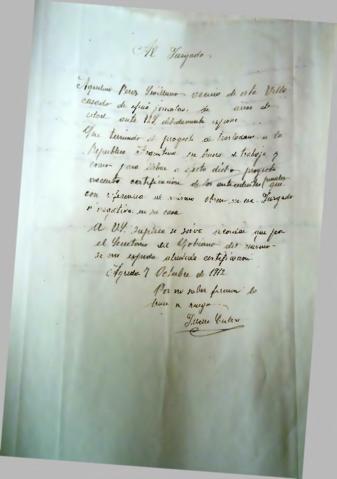 Al Juzgado
Agustin Perez vecino de esta Villa
casado de años de
edad ante Vd. debidamente expone
Que teniendo el proyecto de trasladarse a la
Republica Argentina en busca de trabajo y
como para llevar a efecto dicho proyecto
necesita certificación de los antecedentes penales que
con referencia al mismo obren en ese Juzgado
o negativa en su caso
A Vd. suplica se sirva acordar que por
el Secretario del Gobierno del mismo
se me expida aludida certificación
Agreda 7 Octubre de 1912
Por no saber firmar lo
hace a ruego